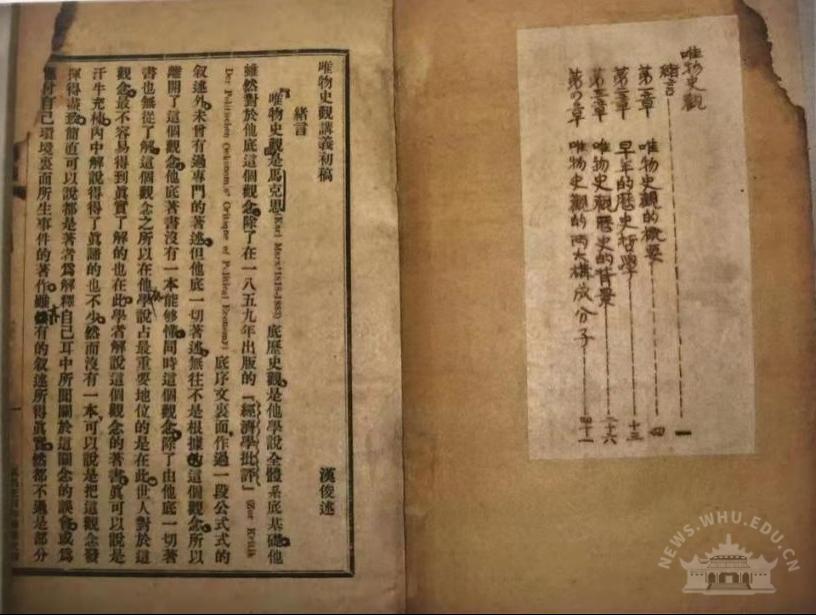 唯物史觀
緒言 一
第一章 唯物史觀的概要 四
第二章 早年的歷史哲學 十三
第三章 唯物史觀歷史的背景 二十六
第四章 唯物史觀的兩大構成分子 四十一
唯物史觀講義初稿 漢俊述
緒言
唯物史觀是馬克思(Karl Marx 1818-1883)底歷史觀是他學說全體系底基礎他
雖然對於他底這個觀念除了在一八五九年出版的「經濟學批評」(Zur Kritik
Der Politischen Oekonomie Critique of Political Economy)底序文裏面作過一段公式式的
叙述外未曾有過專門的著述但他底一切著述無往不是根據的這個觀念所以
離開了這個觀念他底著書沒有一本能够懂同時這個觀念除了由他底一切著
書也無從了解這個觀念之所以在他學說占最重要地位的是在此世人對於這
觀念最不容易得到眞實了解的也在此學者解說這個觀念的著書眞可以說是
汗牛充棟內中解說得得了眞諦的也不少然而沒有一本可以說是把這觀念發
揮得盡致簡直可以說都是著者爲解釋自己耳中所聞關於這觀念的誤會或爲
應付自己環境裏面所生事件的著作雖有的叙述所得眞實然都不過是部分
NEWS.WHU.EDU.CN